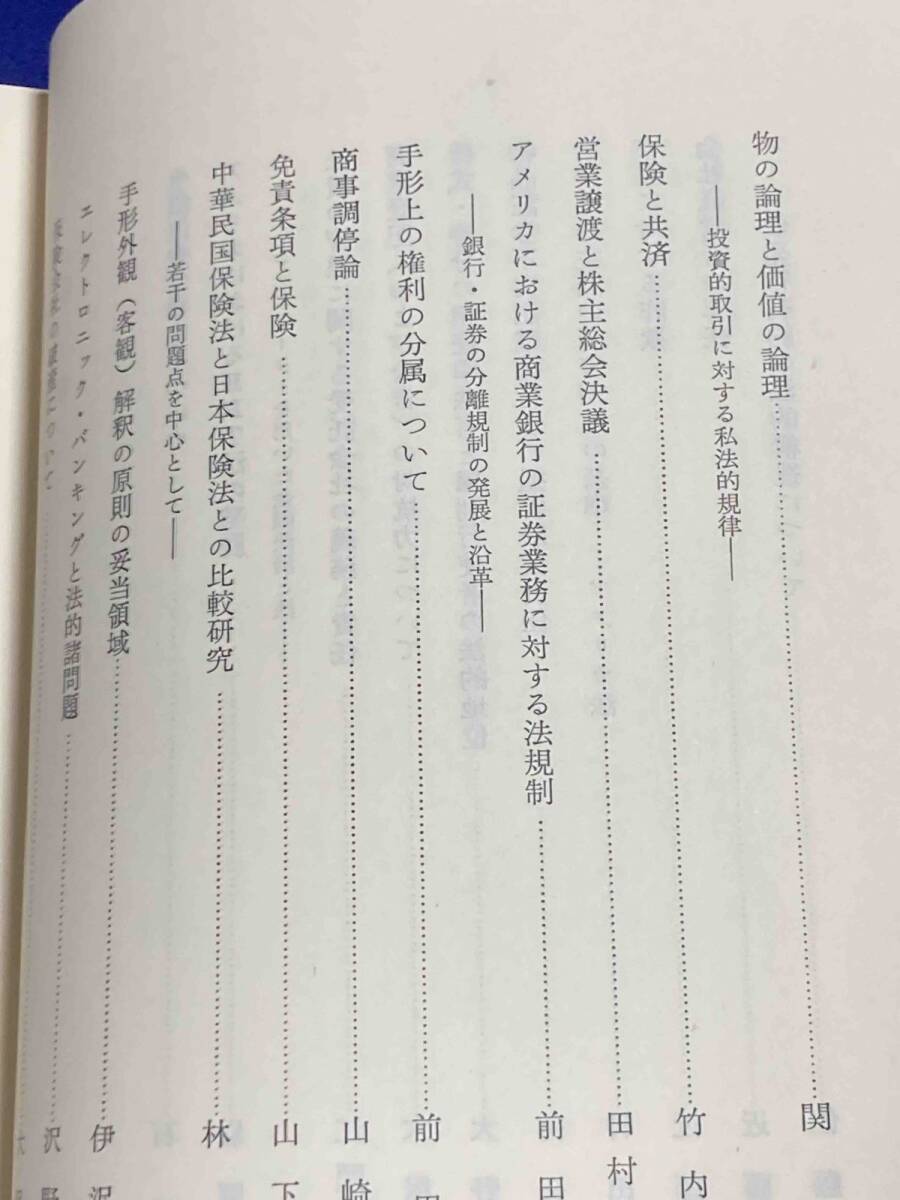 物の論理と価値の論理……関
――投資的取引に対する私法的規律――
保険と共済……竹内
営業譲渡と株主総会決議……田村
アメリカにおける商業銀行の証券業務に対する法規制……前田
――銀行・証券の分離規制の発展と沿革――
手形上の権利の分属について……前
商事調停論……山崎
免責条項と保険……山下
中華民国保険法と日本保険法との比較研究……林
――若干の問題点を中心として――
手形外観（客観）解釈の原則の妥当領域……伊沢
エレクトロニック・バンキングと法的諸問題……沢野